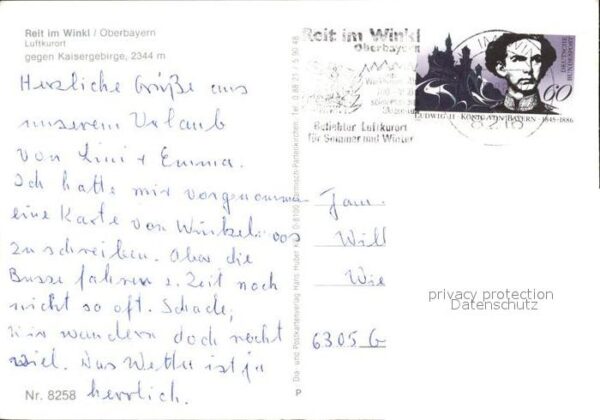 Reit im Winkl / Oberbayern
Luftkurort
gegen Kaisergebirge, 2344 m
Herzliche Grüße aus
unserem Urlaub
von Lini + Emma.
Ich hatte mir vorgenommen
eine Karte von Winkelmoos
zu schreiben. Aber die
Busse fahren z. Zeit noch
nicht so oft. Schade,
wir wandern doch recht
viel. Das Wetter ist ja
herrlich.
Nr. 8258
Dia- und Postkartenverlag Hans Huber
Garmisch-Partenkirchen
P
Reit im Winkl
Oberbayern
Beliebter Luftkurort
für Sommer und Winter
8216
DEUTSCHE
BUNDESPOST
60
LUDWIG II · KÖNIG VON BAYERN · 1845-1886
Fam.
Will
Wie
6305 G
privacy protection
Datenschutz